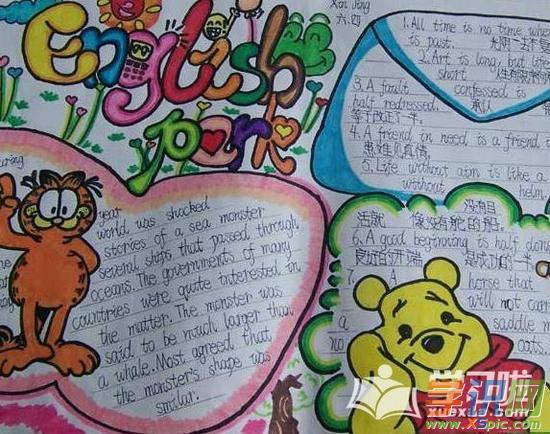 Xin Jing
六.四
English
park
1. All time is no time when
is past.
2. Art is long, but life
short
3. A fault confessed is
half redressed. 承认
等于改正了一半.
4. A friend in need is a friend
患难见真情.
5. Life without aim is like a
without helm,
没有目
活就 像没有舵的船.
6. A good beginning is half done
良好的开端 是成功的一半
7. A horse that
will not carry
a saddle
no oats.
uring
year
world was shocked
stories of a sea monster
several ships that passed through
oceans. The governments of many
countries were quite interested in
the matter. The monster was
said to be much larger than
a whale. Most agreed that
the monster's shape was
similar.
学习啦
www.X5pic.com